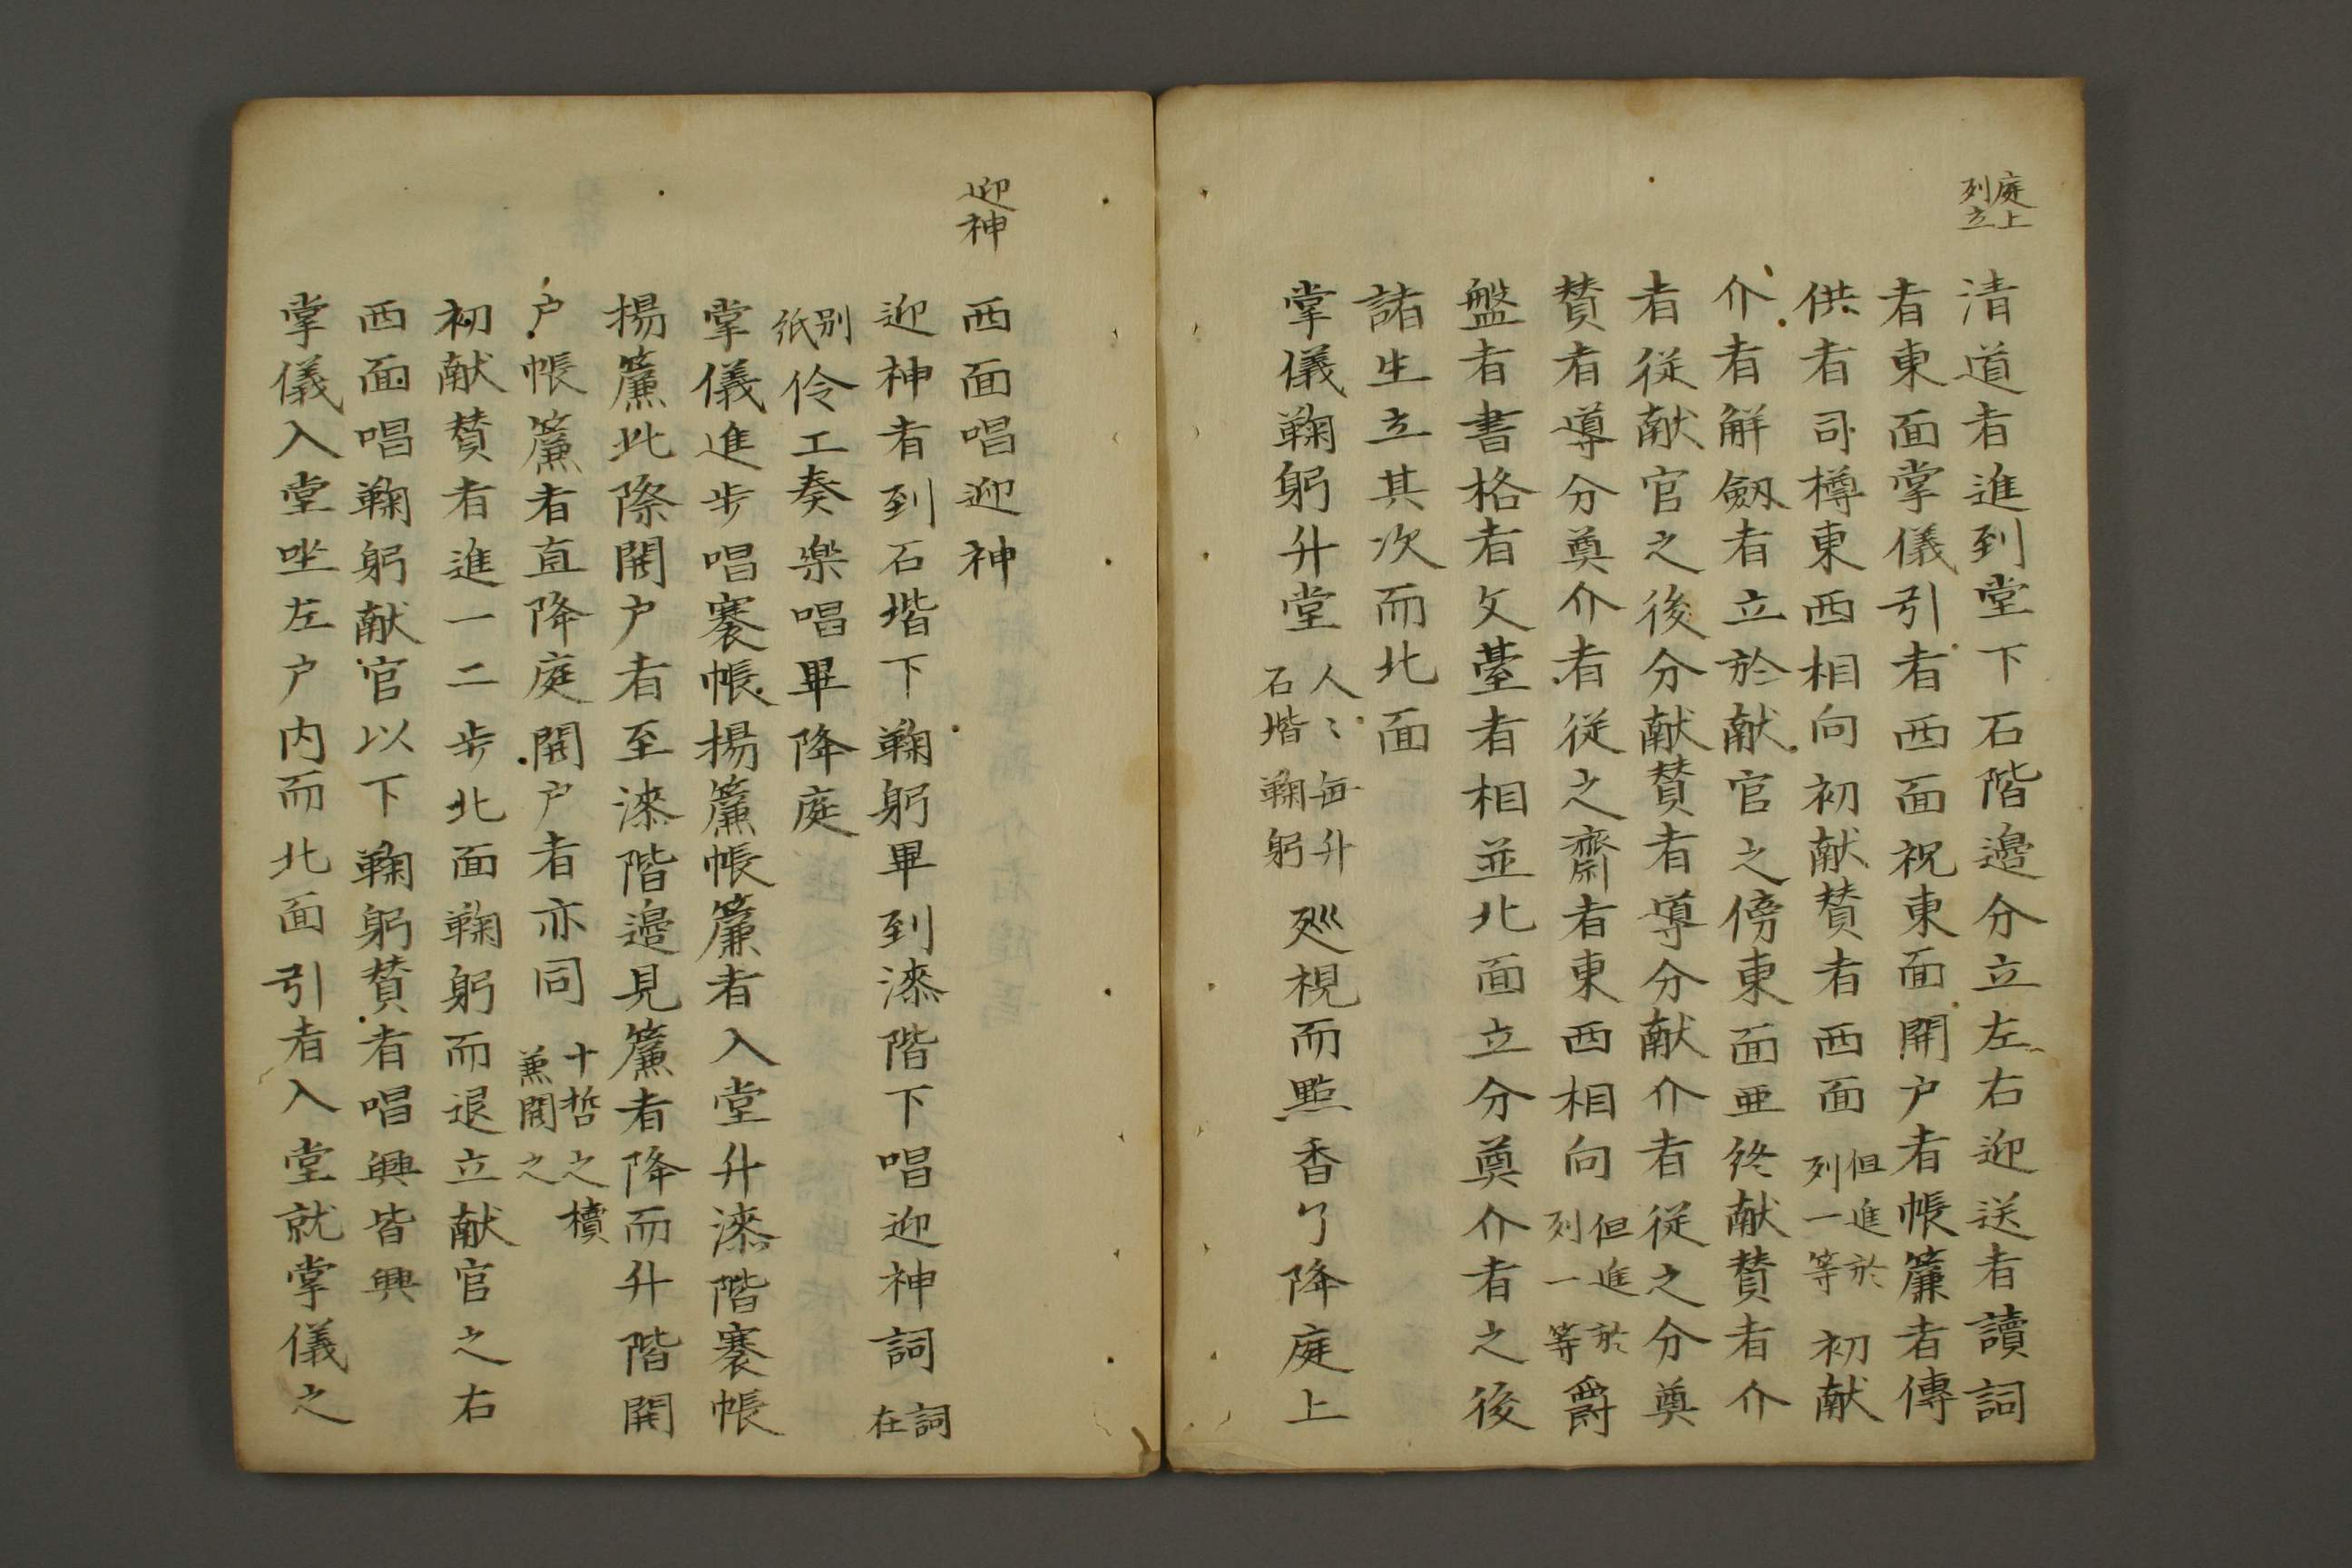 庭上
列立
清道者進到堂下石階邉分立左右迎送者讀詞
者東面掌儀引者西面祝東面開户者帳簾者傳
供者司樽東西相向初献賛者西面但進於列一等初献
介者解劔者立於献官之傍東面亜終献賛者介
者従献官之後分献賛者導分献介者従之分奠
賛者導分奠介者従之齋者東西相向但進於列一等爵
盤者書格者文䑓者相並北面立分奠介者之後
諸生立其次而北面
掌儀鞠躬升堂人〻毎升石堦鞠躬廵視而㸃香了降庭上
迎神
西面唱迎神
迎神者到石堦下鞠躬畢到漆階下唱迎神詞詞在
别紙伶工奏楽唱畢降庭
掌儀進歩唱褰帳揚簾帳簾者入堂升漆階褰帳
揚簾此際開户者至漆階邉見簾者降而升階開
户帳簾者直降庭開户者亦同十哲之櫝兼開之
初献賛者進一二歩北面鞠躬而退立献官之右
西面唱鞠躬献官以下鞠躬賛者唱興皆興
掌儀入堂坐左户内而北面引者入堂就掌儀之